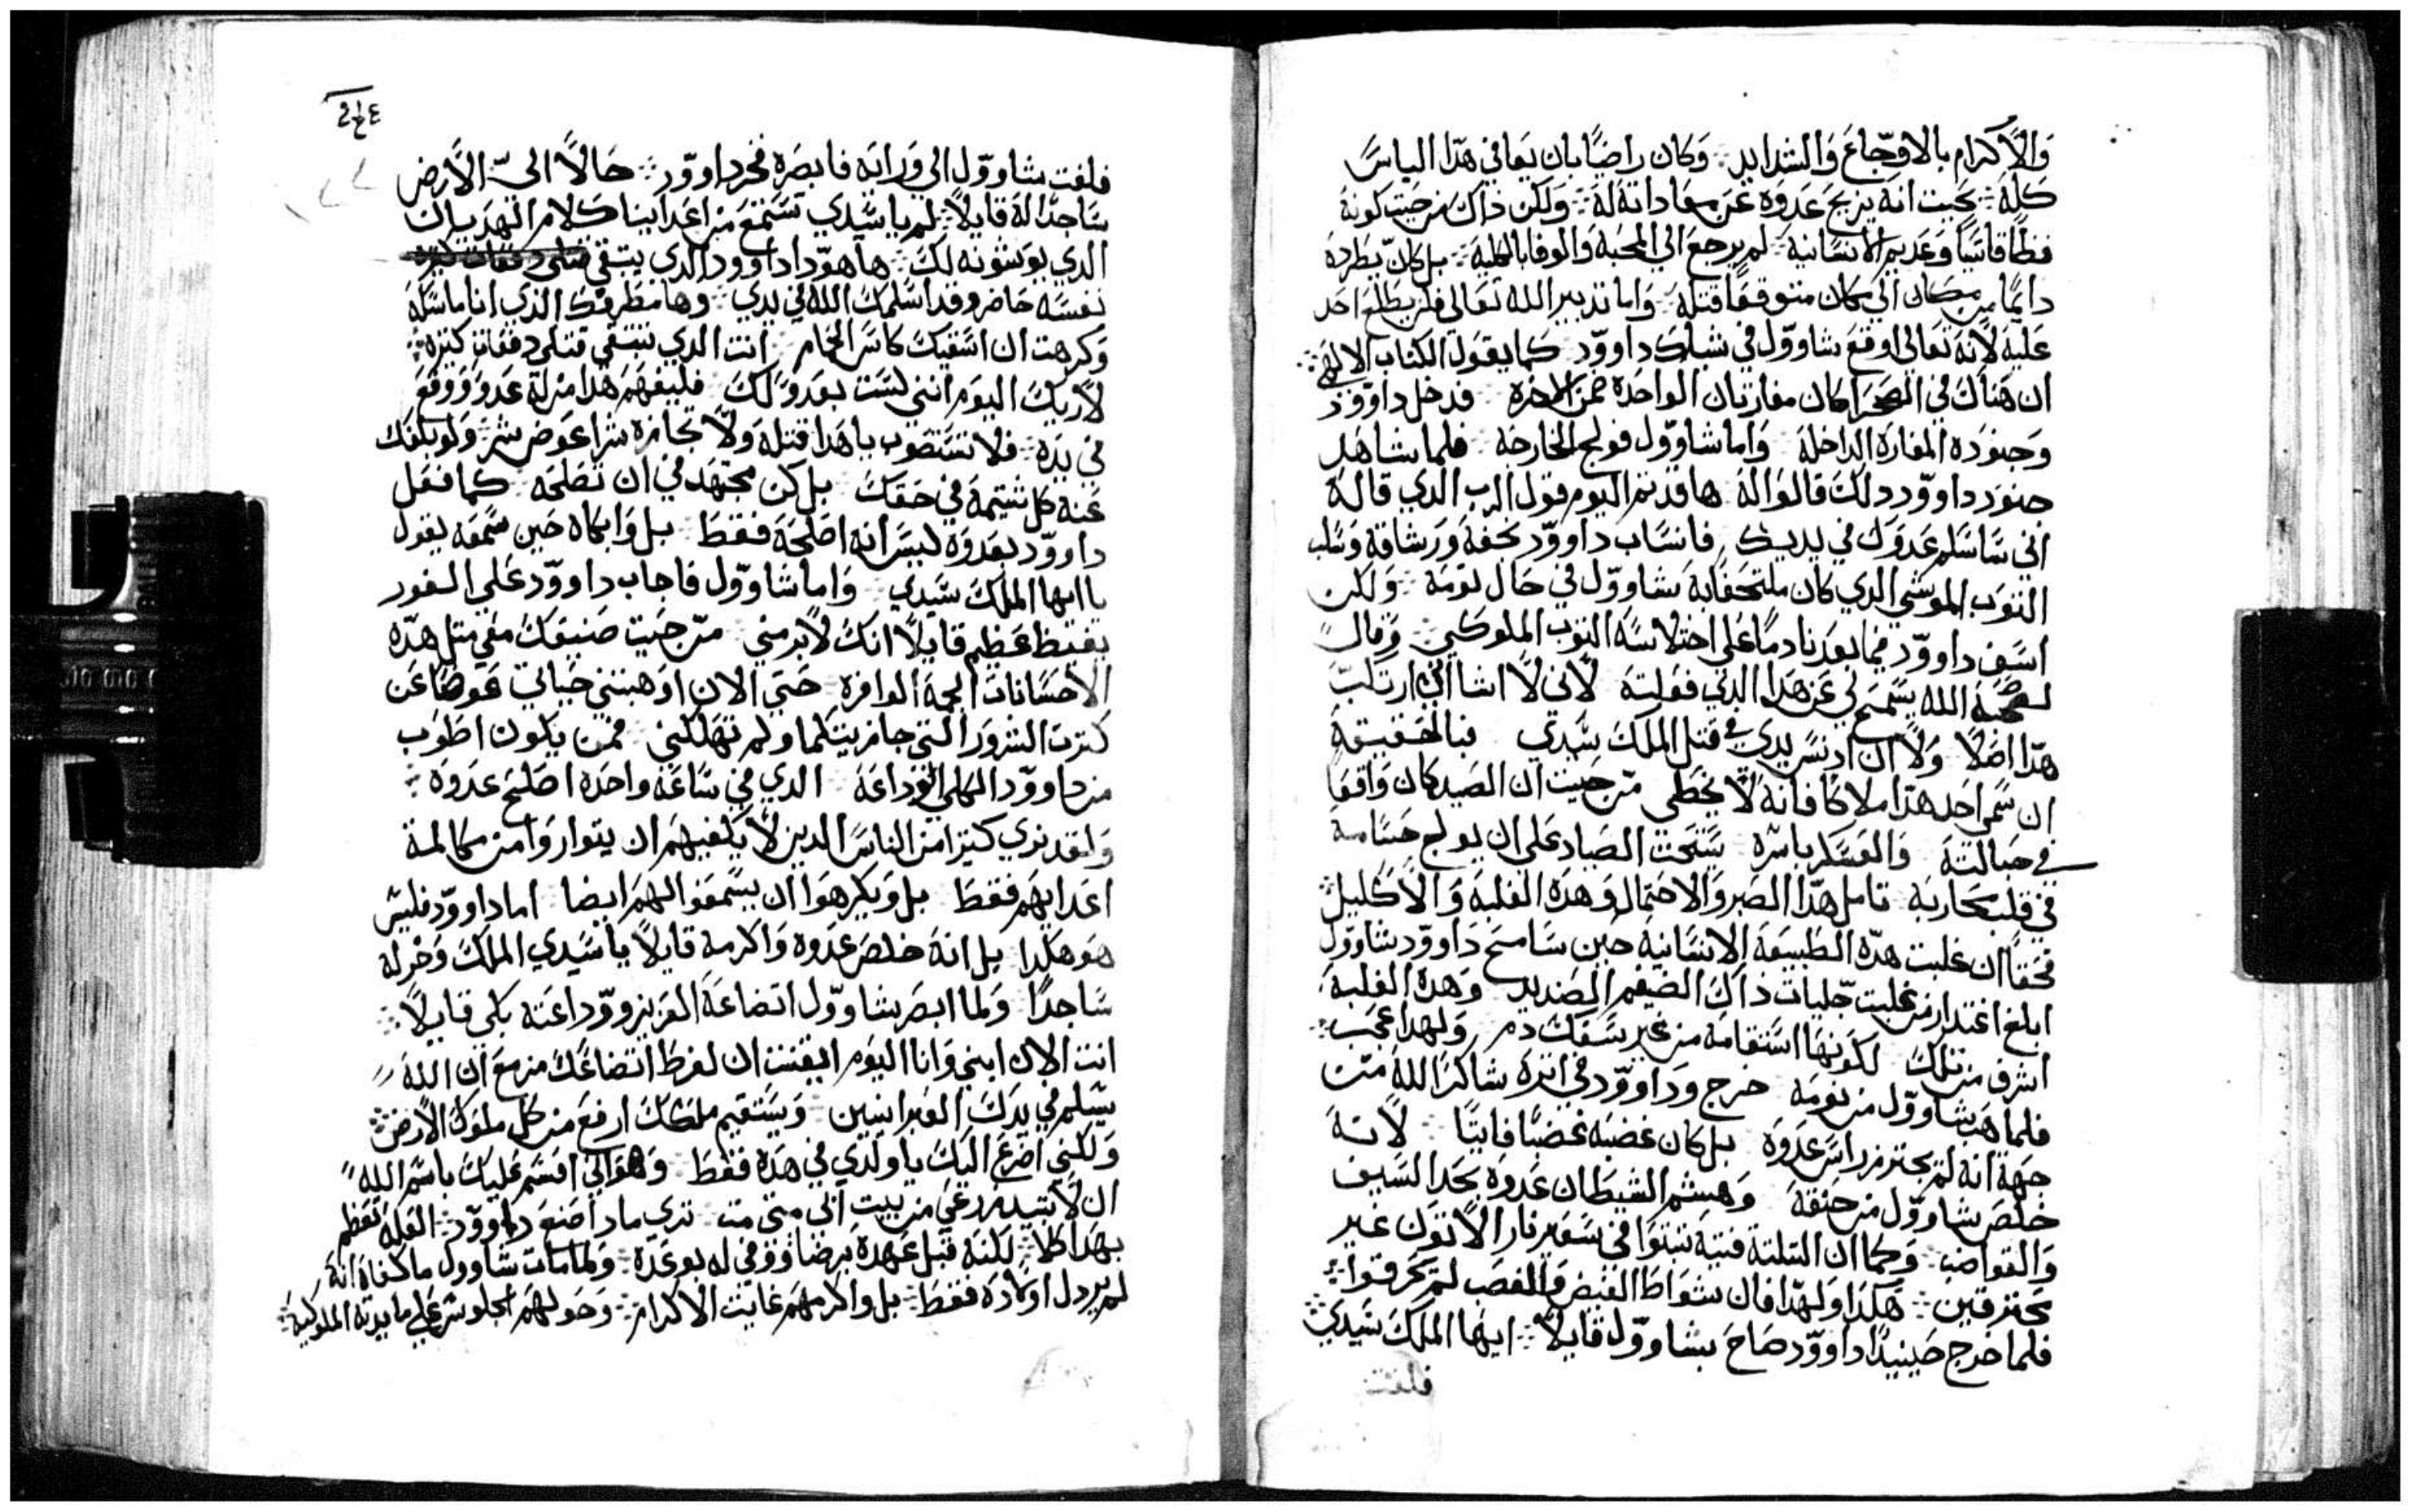 والاكرام بالاوجاع والشدايد وكان راضيًا بان يعافي هدا الباس
كله بحيت انه يزيح عدوه عن معاداته له ولكن داك من حيت كونه
فظًا قاسيًا وعديم الانسانية لم يرجع الي المحبة والوفا بالكلية بل كان يطرده
دايمًا من مكان الي مكان متوقعًا قتله واما تدبير الله تعالي فلم يطلع احد
عليه لانه تعالي اوقع شاوول في شباك داوود كما يقول الكتاب الالهي
ان هناك في الصحرا كان مغارتان الواحدة ضمن الاخره فدخل داوود
وجنوده المغارة الداخلة واما شاوول فولج الخارجه فلما شاهد
جنود داوود دلك قالوا له ها قد تم اليوم قول الرب الدي قاله
اني ساسلم عدوك في يديك فانساب داوود بخفة ورشاقة وسلب
التوب الموشي الدي كان ملتحفًا به شاوول في حال نومه ولكن
اسف داوود فيما بعد نادمًا علي اختلاسه التوب الملوكي وقال
الله يسمح لي عن هدا الدي فعلته لاني لا اشا اني ارتكب
هدا اصلًا ولا ان ادنس يدي في قتل الملك سيدي فبالحقيقة
ان سمي احد هدا ملاكًا فانه لا يخطي من حيت ان الصيد كان واقفًا
في حبالته والعسكر باسره يستحت الصياد علي ان يولج حسامه
في قلب محاربه تامل هدا الصبر والاحتمال وهده الغلبه والاكليل
فحقًا ان غلبت هده الطبيعة الانسانية حين سامح داوود شاوول
ابلغ اقتدار من غلبت جليات داك الضيغم الصنديد وهده الغلبة
اشرف من تلك لكونها استقامة من غير سفك دم ولهدا عجب
فلما هب شاوول من نومه خرج وداوود في اتره شاكرًا الله من
جهة انه لم يحتز راس عدوه بل كان غضبه غضبًا فايتًا لانه
خلص شاوول من حتفه وهشم الشيطان عدوه بحد السيف
والقواضب وكما ان التلتة فتية تبتوا في سعير نار الاتون غير
محترقين هكدا ولهدا فان شواظ الغيض والغضب لم تحرقوا
فلما خرج حينيدًا داوود صاح بشاوول قايلًا ايها الملك سيدي
فلفت
فلفت شاوول الي ورايه فابصره فخر داوود حالًا الي الارض
ساجدًا له قايلًا لم يا سيدي تستمع من اعداينا كلام الهديان
الدي يوشونه لك ها هودا داوود الدي يبتغي قتلي دفعات كتيرة
نفسه حاضر وقد اسلمك الله في يدي وها مطرفك الدي انا ماسكه
وكرهت ان اسقيك كاس الحمام انت الدي تبتغي قتلي دفعات كتيره
لاريك اليوم انني لست بعدو لك فليفهم هدا من له عدو ووقع
في يده فلا تستصوب يا هدا قتله ولا تجازه شرًا عوض شر ولو بلغك
عنه كل شتيمة في حقك بل كن مجتهد في ان تصلحه كما فعل
داوود بعدوه ليس انه اصلحه فقط بل وابكاه حين سمعه يقول
يا ايها الملك سيدي واما شاوول فاجاب داوود علي الفور
عظيم قايلًا انك لابر مني من حيت صنيعك معي متل هده
الاحسانات الجمة الوافره حتي الان اوهبتني حياتي عوضًا عن
كترت الشرور التي جازيتكها ولم تهلكني فمن يكون اطوب
من داوود الكلي الوداعة الدي في ساعة واحده اصلح عدوه
ولقد نري كتيرًا من الناس الدين لا يكفيهم ان يتواروا من مكالمة
اعدايهم فقط بل ويكرهوا ان يسمعوا لهم ايضا اما داوود فليس
هو هكدا بل انه خلص عدوه واكرمه قايلًا يا سيدي الملك وخر له
ساجدًا ولما ابصر شاوول اتضاعه العزيز ووداعته بكي قايلًا
انت الان ابني وانا اليوم ايقنت ان لفرط اتضاعك مزمع ان الله
يسلم في يدك العبرانيين ويستقيم ملكك ارفع من كل ملوك الارض
ولكني اضرع اليك يا ولدي في هده فقط وهو اني اقسم عليك باسم الله
ان لا تبيد زرعي من بيت ابي متي مت تري مادا صنع داوود العله تعظم
بهدا كلا لكنه قبل عهده برضا ووفي له بوعده ولما مات شاوول ما كفاه انه
لم يردل اولاده فقط بل واكرمهم غايت الاكرام وخولهم الجلوس علي مايدته الملوكية